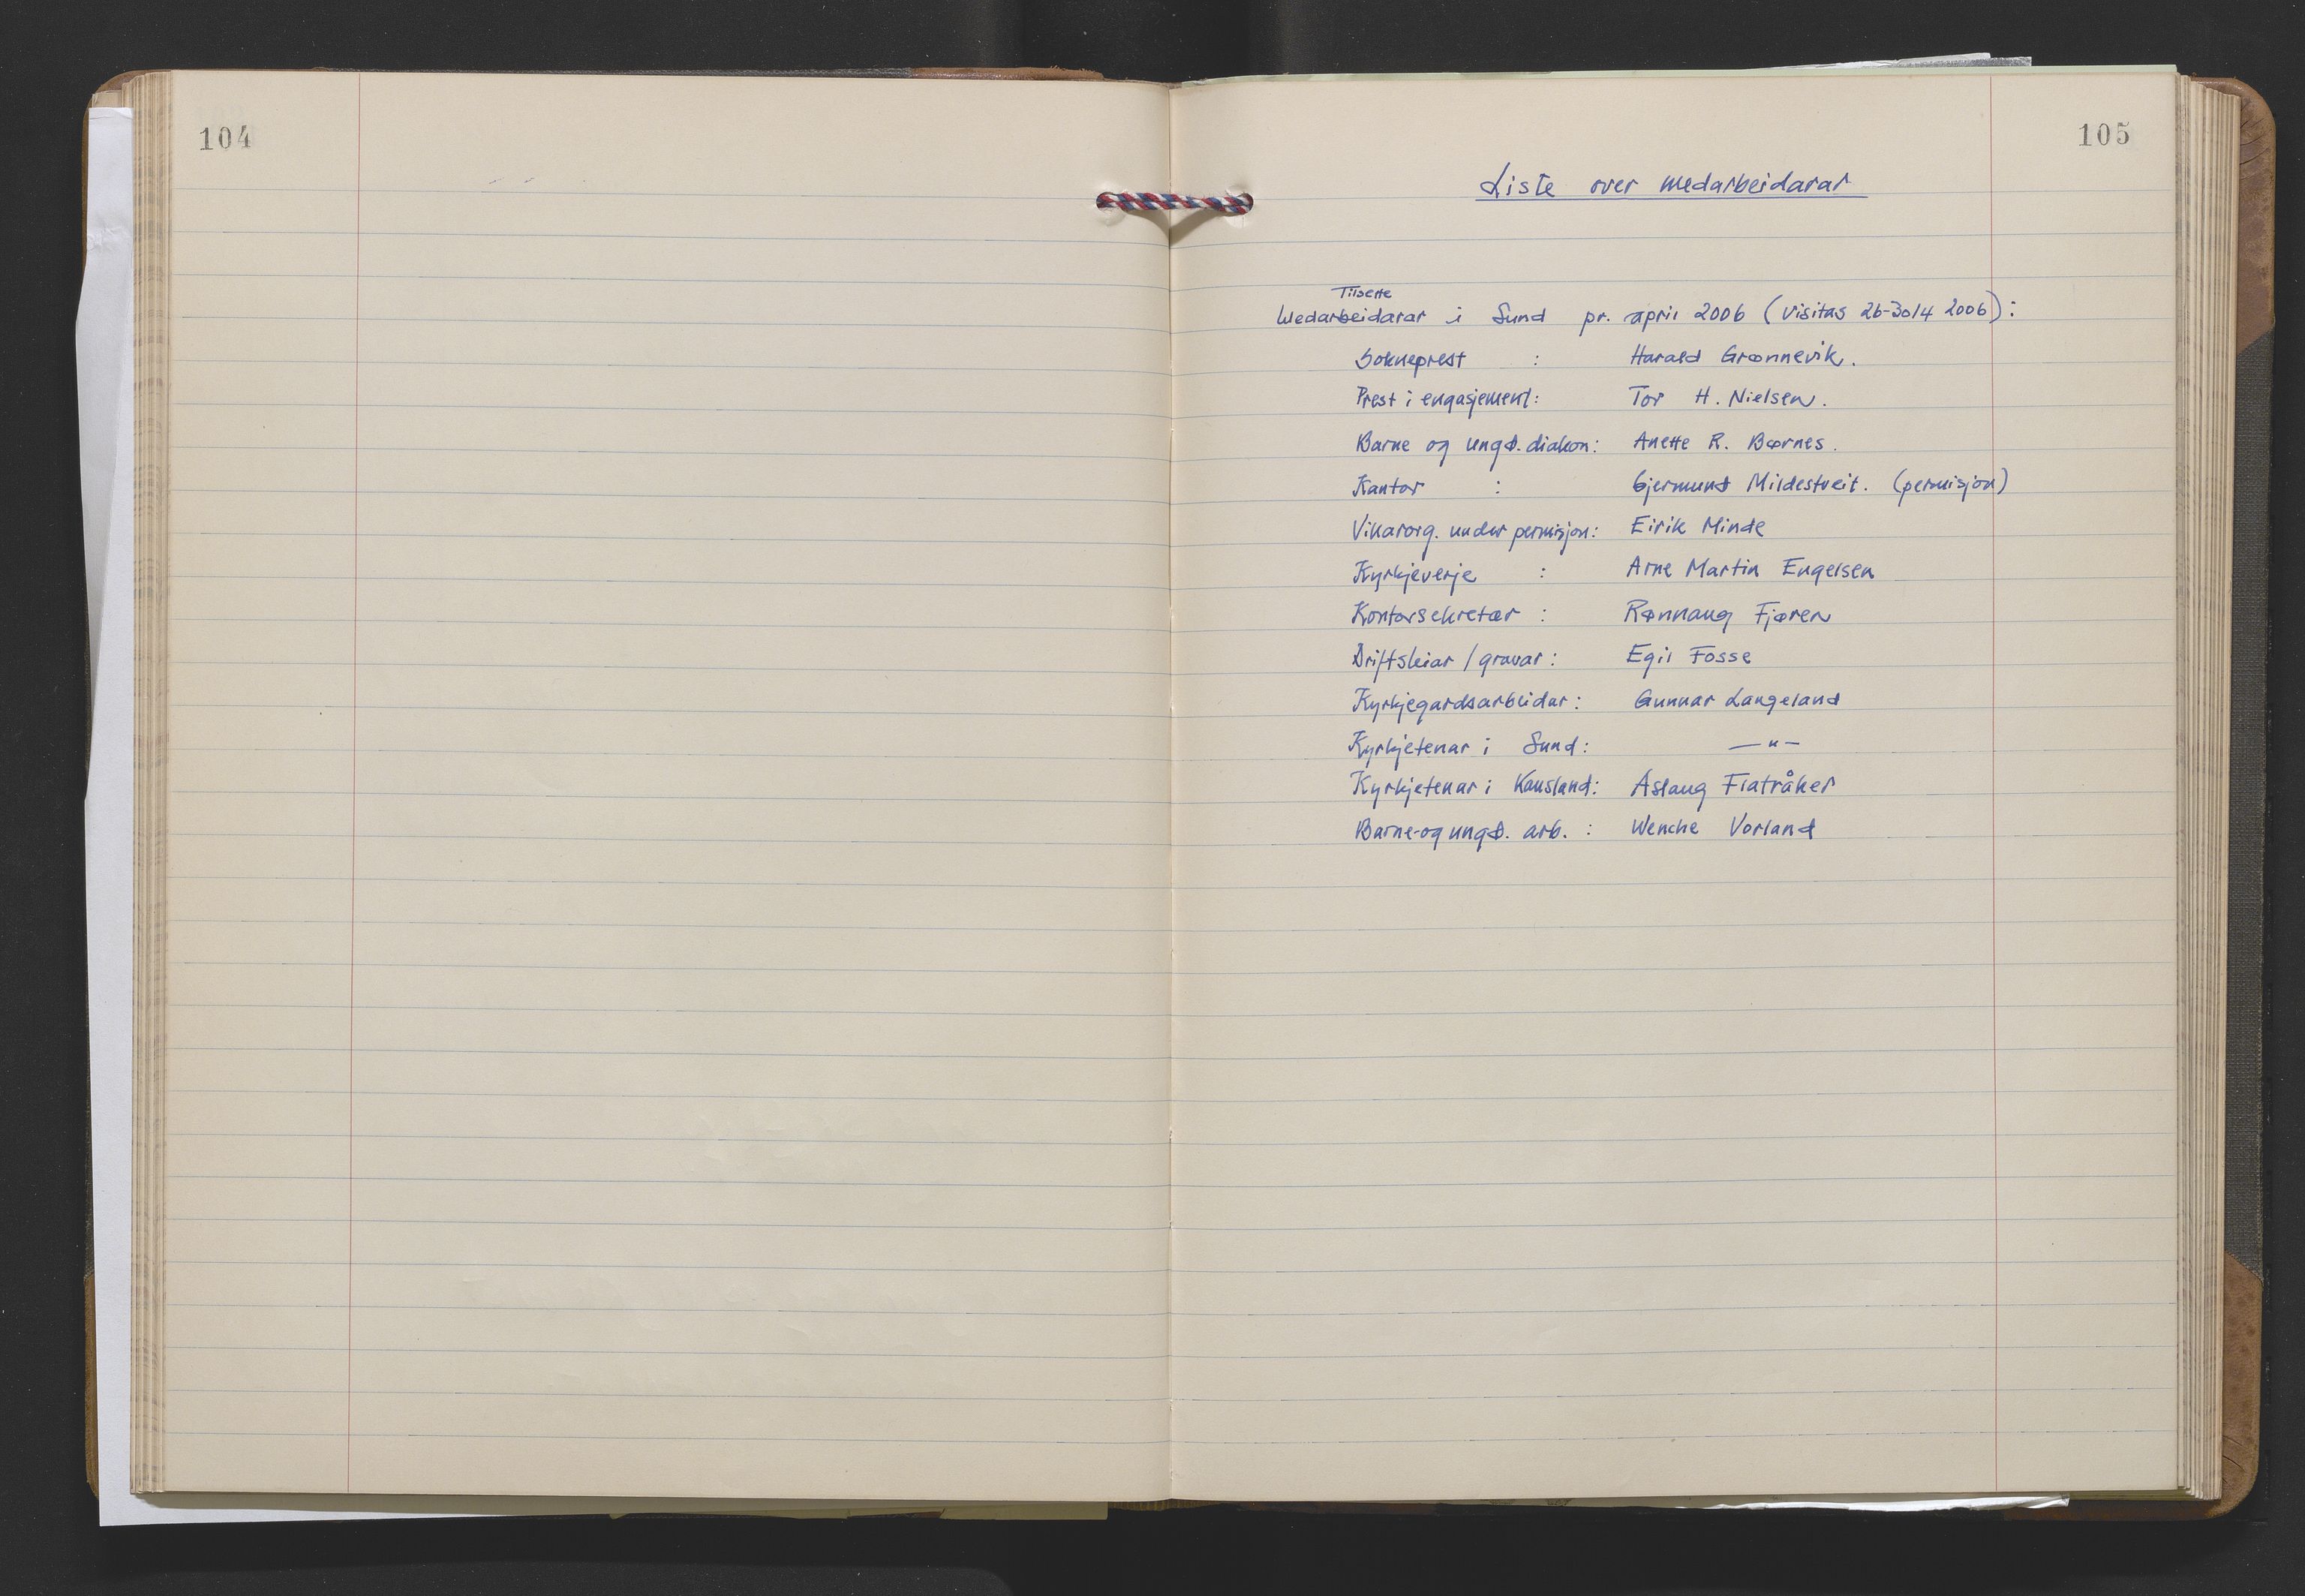 104
105
Liste over medarbeidarar
Tilsette
Medarbeidarar i Sund pr. april 2006 (visitas 26-30/4 2006):
Sokneprest : Harald Grønnevik.
Prest i engasjement: Tor H. Nielsen.
Barne og ungd. diakon: Anette R. Børnes.
Kantor : Gjermund Mildestveit. (permisjon)
Vikarorg. under permisjon: Eirik Minde
Kyrkjeverje : Arne Martin Engelsen
Kontorsekretær : Rønnaug Fjæren
Driftsleiar / gravar: Egil Fosse
Kyrkjegardsarbeidar: Gunnar Langeland
Kyrkjetenar i Sund: —"—
Kyrkjetenar i Kausland: Åslaug Flatråker
Barne-og ungd. arb. : Wenche Vorland